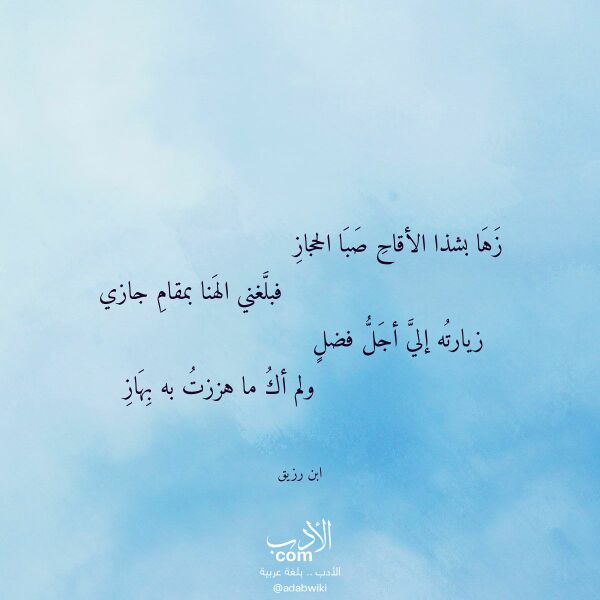 زَهَا بشذا الأقاحِ صَبَا الحجازِ
فبلَّغني الهَنا بمقامِ جازي
زيارتُه إليَّ أجَلُّ فضلٍ
ولم أكُ ما هززتُ به بِهَازِ
ابن رزيق
الأدب
com
الأدب .. بلغة عربية
@adabwiki